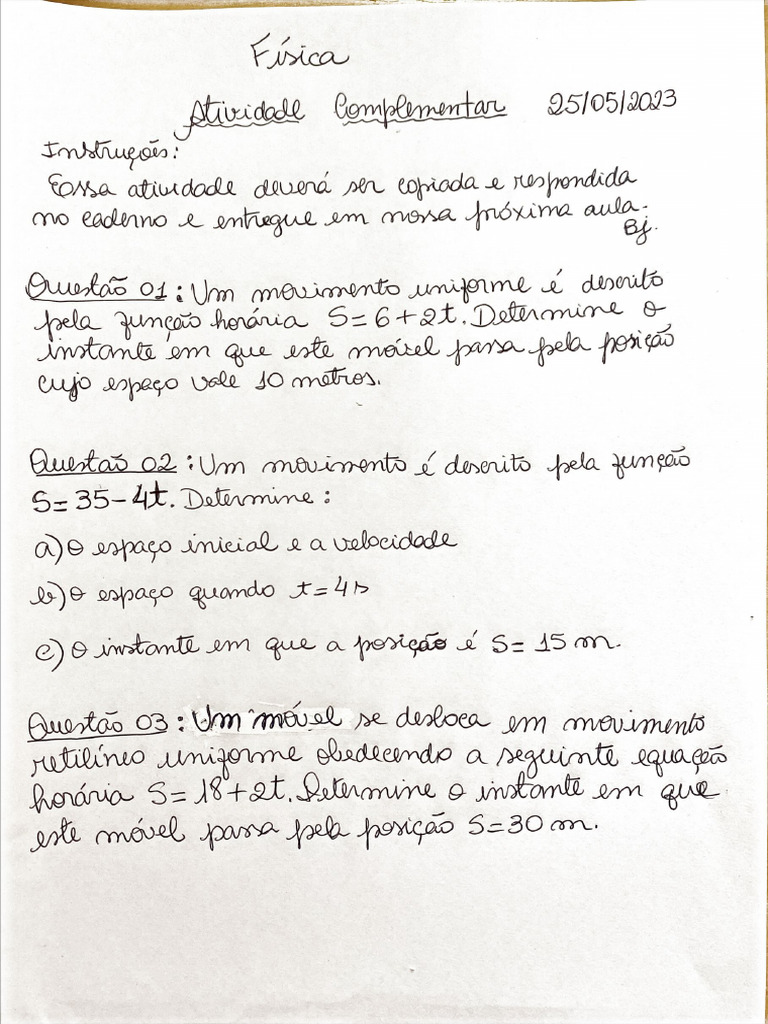 Física
Atividade Complementar 25/05/2023
Instruções:
Essa atividade deverá ser copiada e respondida
no caderno e entregue em nossa próxima aula.
Bj.
Questão 01: Um movimento uniforme é descrito
pela função horária S=6+2t. Determine o
instante em que este móvel passa pela posição
cujo espaço vale 10 metros.
Questão 02: Um movimento é descrito pela função
S=35-4t. Determine:
a) o espaço inicial e a velocidade
b) o espaço quando t=4s
c) o instante em que a posição é S=15 m.
Questão 03: Um móvel se desloca em movimento
retilíneo uniforme obedecendo a seguinte equação
horária S=18+2t. Determine o instante em que
este móvel passa pela posição S=30 m.